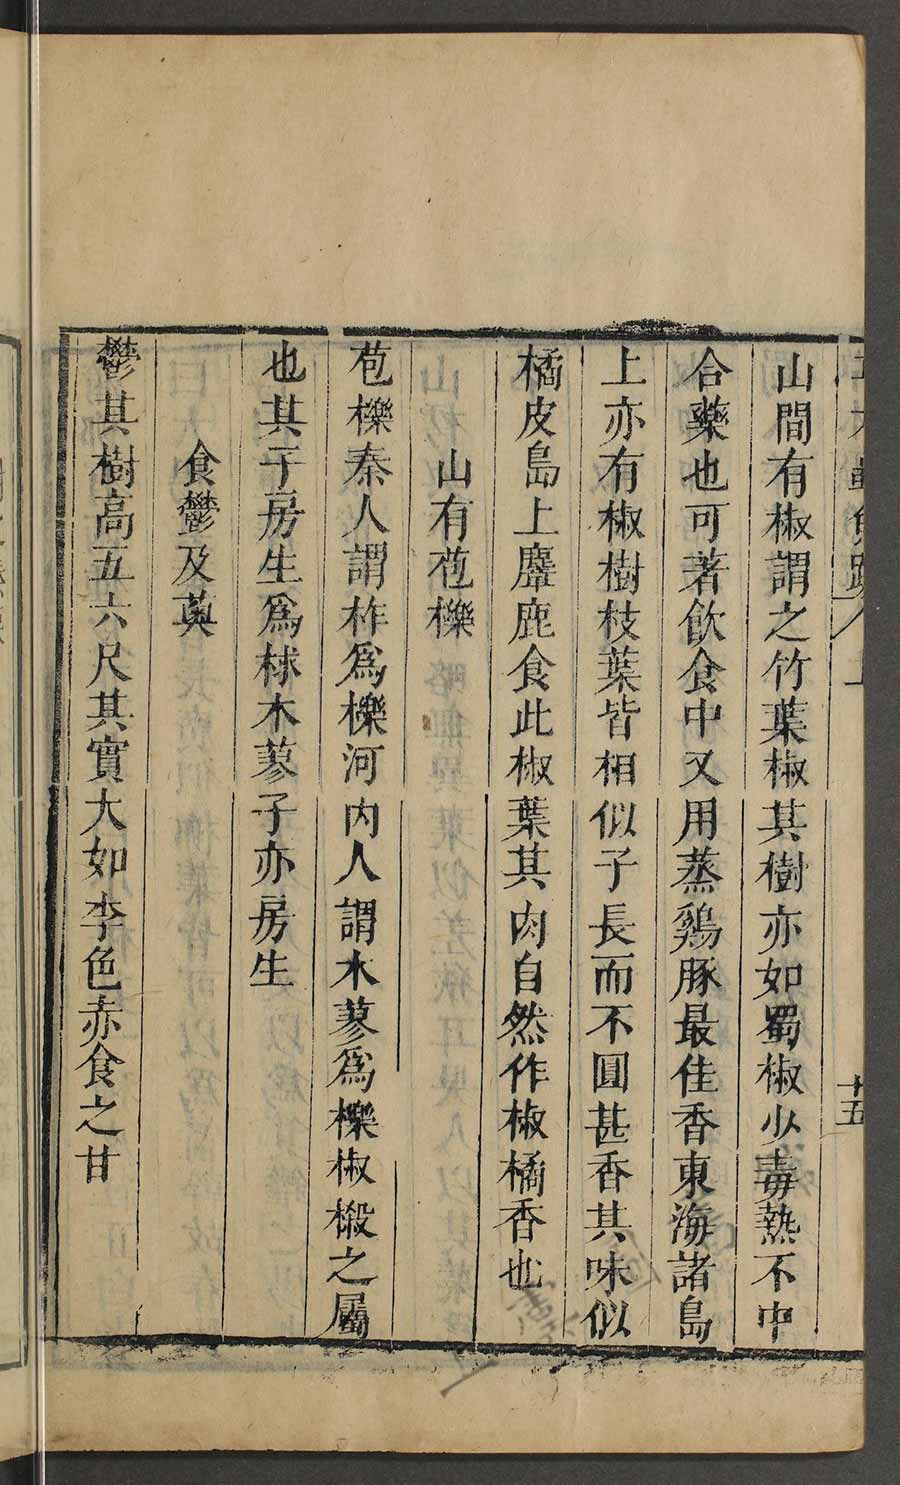 山間有椒謂之竹葉椒其樹亦如蜀椒少毒熱不中
合藥也可著飲食中又用蒸鷄豚最佳香東海諸島
上亦有椒樹枝葉皆相似子長而不圓甚香其味似
橘皮島上麞鹿食此椒葉其肉自然作椒橘香也
山有苞櫟
苞櫟秦人謂柞爲櫟河内人謂木蓼爲櫟椒樧之屬
也其子房生爲梂木蓼子亦房生
食鬱及薁
鬱其樹高五六尺其實大如李色赤食之甘
十五